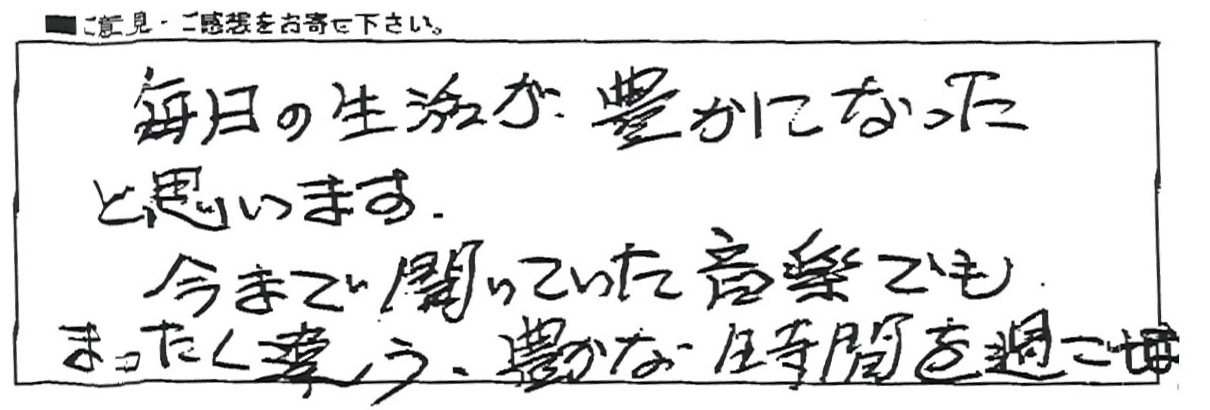 ■ご意見・ご感想をお寄せ下さい。
毎日の生活が豊かになった
と思います.
今まで聞いていた音楽でも
まったく違う、豊かな時間を過ごせ